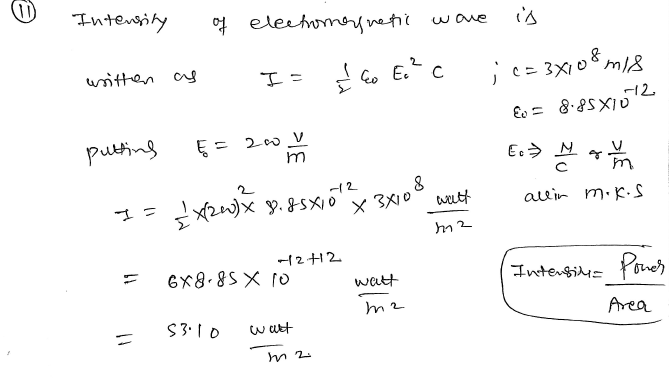 (11) Intensity of electromagnetic wave is
written as I = 1/2 ε₀ E₀² C ; c = 3×10⁸ m/s
ε₀ = 8.85×10⁻¹²
putting E₀ = 200 V/m E₀ ⇒ N/C or V/m
all in m.k.s
I = 1/2 × (200)² × 8.85×10⁻¹² × 3×10⁸ watt/m²
= 6×8.85×10⁻¹²⁺¹² watt/m²
Intensity = Power/Area
= 53.10 watt/m²